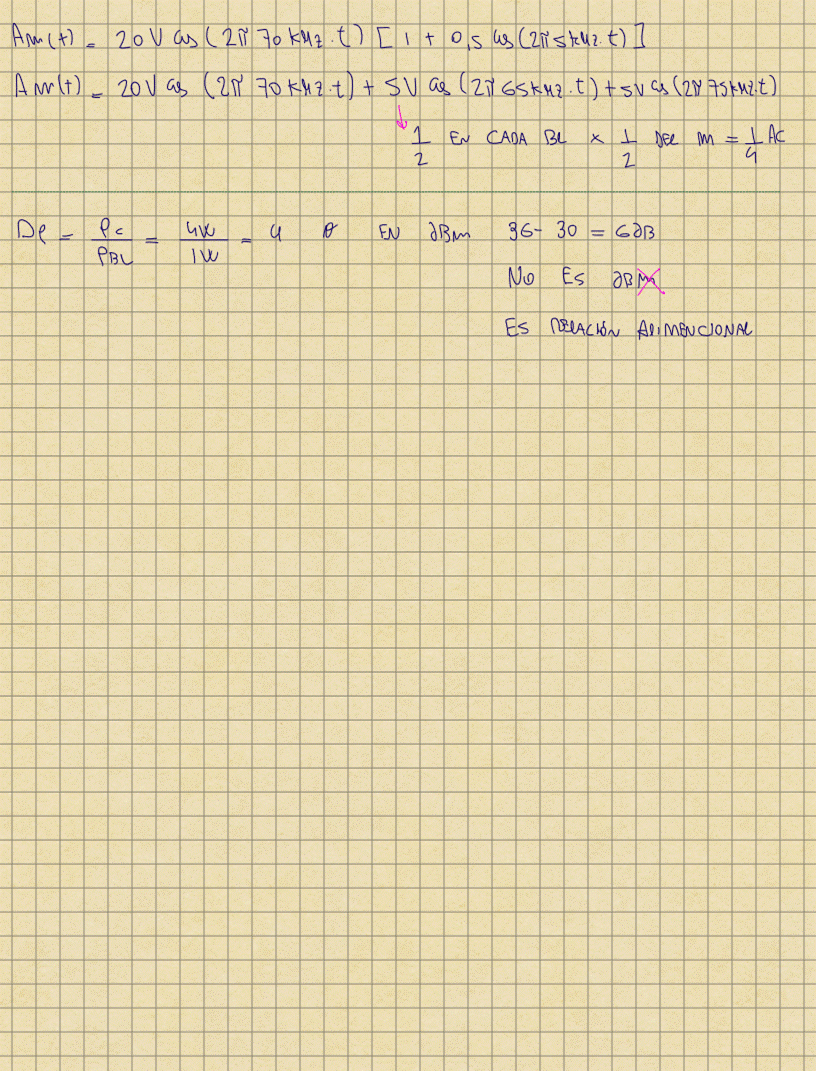 Am(t) = 20V cos(2π 70kHz.t) [1 + 0,5 cos(2π5kHz.t)]
Am(t) = 20V cos (2π 70kHz.t) + 5V cos (2π65kHz.t) + 5V cos(2π75kHz.t)
↓ 1/2 EN CADA BL x 1/2 DEL m = 1/4 Ac
DP = Pc/PBL = 4W/1W = 4 EN dBm 36 - 30 = 6dB
NO ES dBm
ES RELACIÓN ADIMENCIONAL